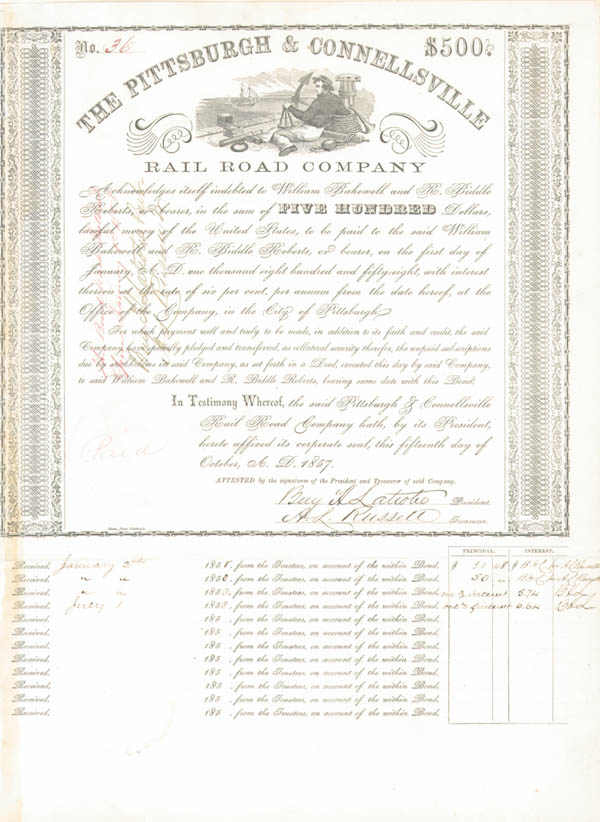 No. 36
$500
THE PITTSBURGH & CONNELLSVILLE
RAIL ROAD COMPANY
Acknowledges itself indebted to William Bakewell and R. Biddle
Roberts, or bearer, in the sum of FIVE HUNDRED Dollars,
lawful money of the United States, to be paid to the said William
Bakewell and R. Biddle Roberts, or bearer, on the first day of
January, A. D. one thousand eight hundred and fifty-eight, with interest
thereon at the rate of six per cent. per annum from the date hereof, at the
Office of the Company, in the City of Pittsburgh.
For which payment well and truly to be made, in addition to its faith and credit, the said
Company have specially pledged and transferred, as collateral security therefor, the unpaid subscriptions
due by stockholders in said Company, as set forth in a Deed, executed this day by said Company,
to said William Bakewell and R. Biddle Roberts, bearing same date with this Bond.
In Testimony Whereof, the said Pittsburgh & Connellsville
Rail Road Company hath, by its President,
hereto affixed its corporate seal, this fifteenth day of
October, A. D. 1857.
Paid
ATTESTED by the signatures of the President and Treasurer of said Company.
Benj H Latrobe President.
A. L. Russell Treasurer.
PRINCIPAL. INTEREST.
Received, January 2nd 1858, from the Trustees, on account of the within Bond, $ 31 48
Received, " " 1858, from the Trustees, on account of the within Bond, 50
Received, " " 1858, from the Trustees, on account of the within Bond, 5.74
Received, July 1 1858, from the Trustees, on account of the within Bond, 6.64
Received, 185 , from the Trustees, on account of the within Bond,
Received, 185 , from the Trustees, on account of the within Bond,
Received, 185 , from the Trustees, on account of the within Bond,
Received, 185 , from the Trustees, on account of the within Bond,
Received, 185 , from the Trustees, on account of the within Bond,
Received, 185 , from the Trustees, on account of the within Bond,
Received, 185 , from the Trustees, on account of the within Bond,
Received, 185 , from the Trustees, on account of the within Bond,